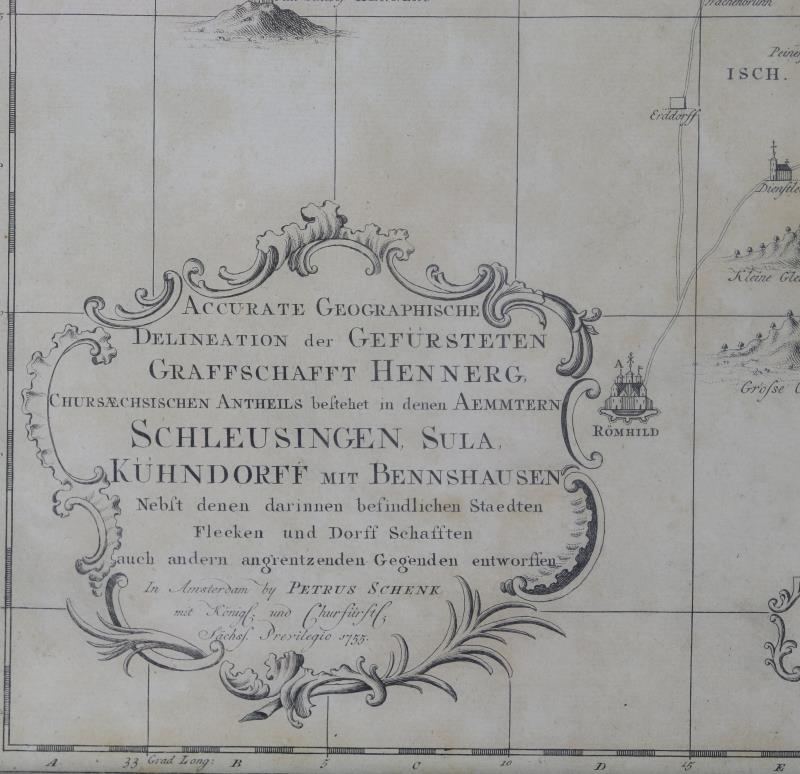 Erddorff
ISCH.
Kleine Gle
Grosse
RÖMHILD
ACCURATE GEOGRAPHISCHE
DELINEATION der GEFÜRSTETEN
GRAFFSCHAFFT HENNERG,
CHURSÆCHSISCHEN ANTHEILS beſtehet in denen AEMMTERN
SCHLEUSINGEN, SULA,
KÜHNDORFF MIT BENNSHAUSEN
Nebſt denen darinnen befindlichen Staedten
Flecken und Dorff Schafften
auch andern angrentzenden Gegenden entworffen
In Amsterdam by PETRUS SCHENK
mit Königl. und Churfürstl.
Sächs. Previlegio 1755.
A 33 Grad Long: B 5 C 10 D 15 E